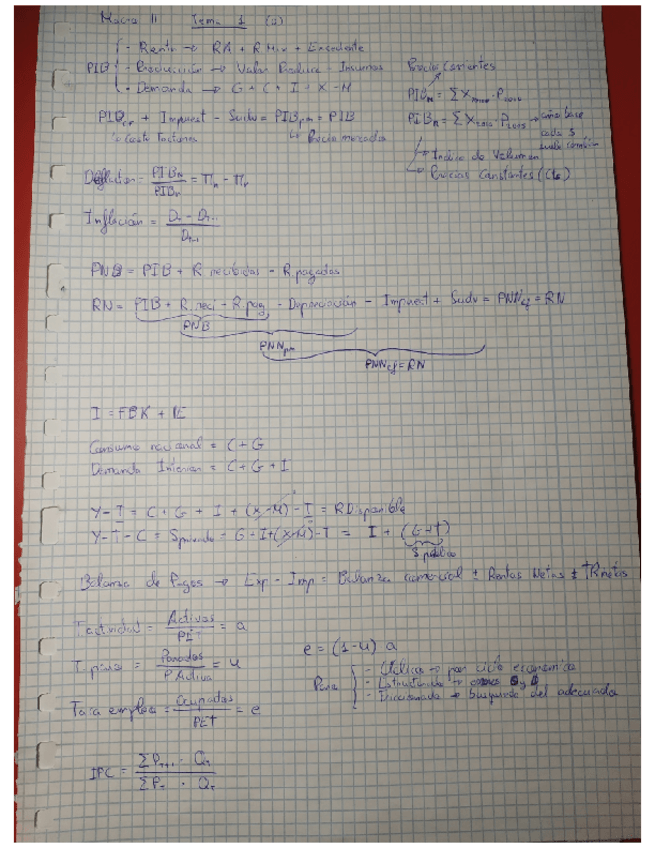 Macro II Tema 1 (a)
- Renta → RA + R.Mix + Excedente
PIB - Producción → Valor Produce - Insumos
- Demanda → G + C + I + X - M
Precios Corrientes
PIBn = Σ X · P
PIBn = Σ X2016 · P2015 → año base
cada 5
→ Indice de Volumen
→ Precios Constantes (Cte)
PIBcf + Impuest - Subv = PIBpm = PIB
↳ Coste Factores ↳ Precio mercado
Deflactor = PIBN / PIBr = Πn - Πr
Inflación = Dt - Dt-1 / Dt-1
PNB = PIB + R recibidas - R pagadas
RN = PIB + R. reci - R. pag - Depreciación - Impuest + Subv = PNNcf = RN
PNB
PNNpm
PNNcf = RN
I = FBK + VE
Consumo nacional = C + G
Demanda Interior = C + G + I
Y - T = C + G + I + (X - M) - T = R Disponible
Y - T - C = Sprivado = G + I + (X - M) - T = I + (G - T)
S público
Balanza de Pagos → Exp - Imp = Balanza comercial ± Rentas Netas ± TR netas
T actividad = Activos / PET = a
T. paro = Parados / P Activa = u
Tasa empleo = Ocupados / PET = e
e = (1 - u) a
Paro - Cíclico → por ciclo económico
- Estructural →
- Friccional → búsqueda del adecuado
IPC = Σ Pt+1 · Qt / Σ Pt · Qt